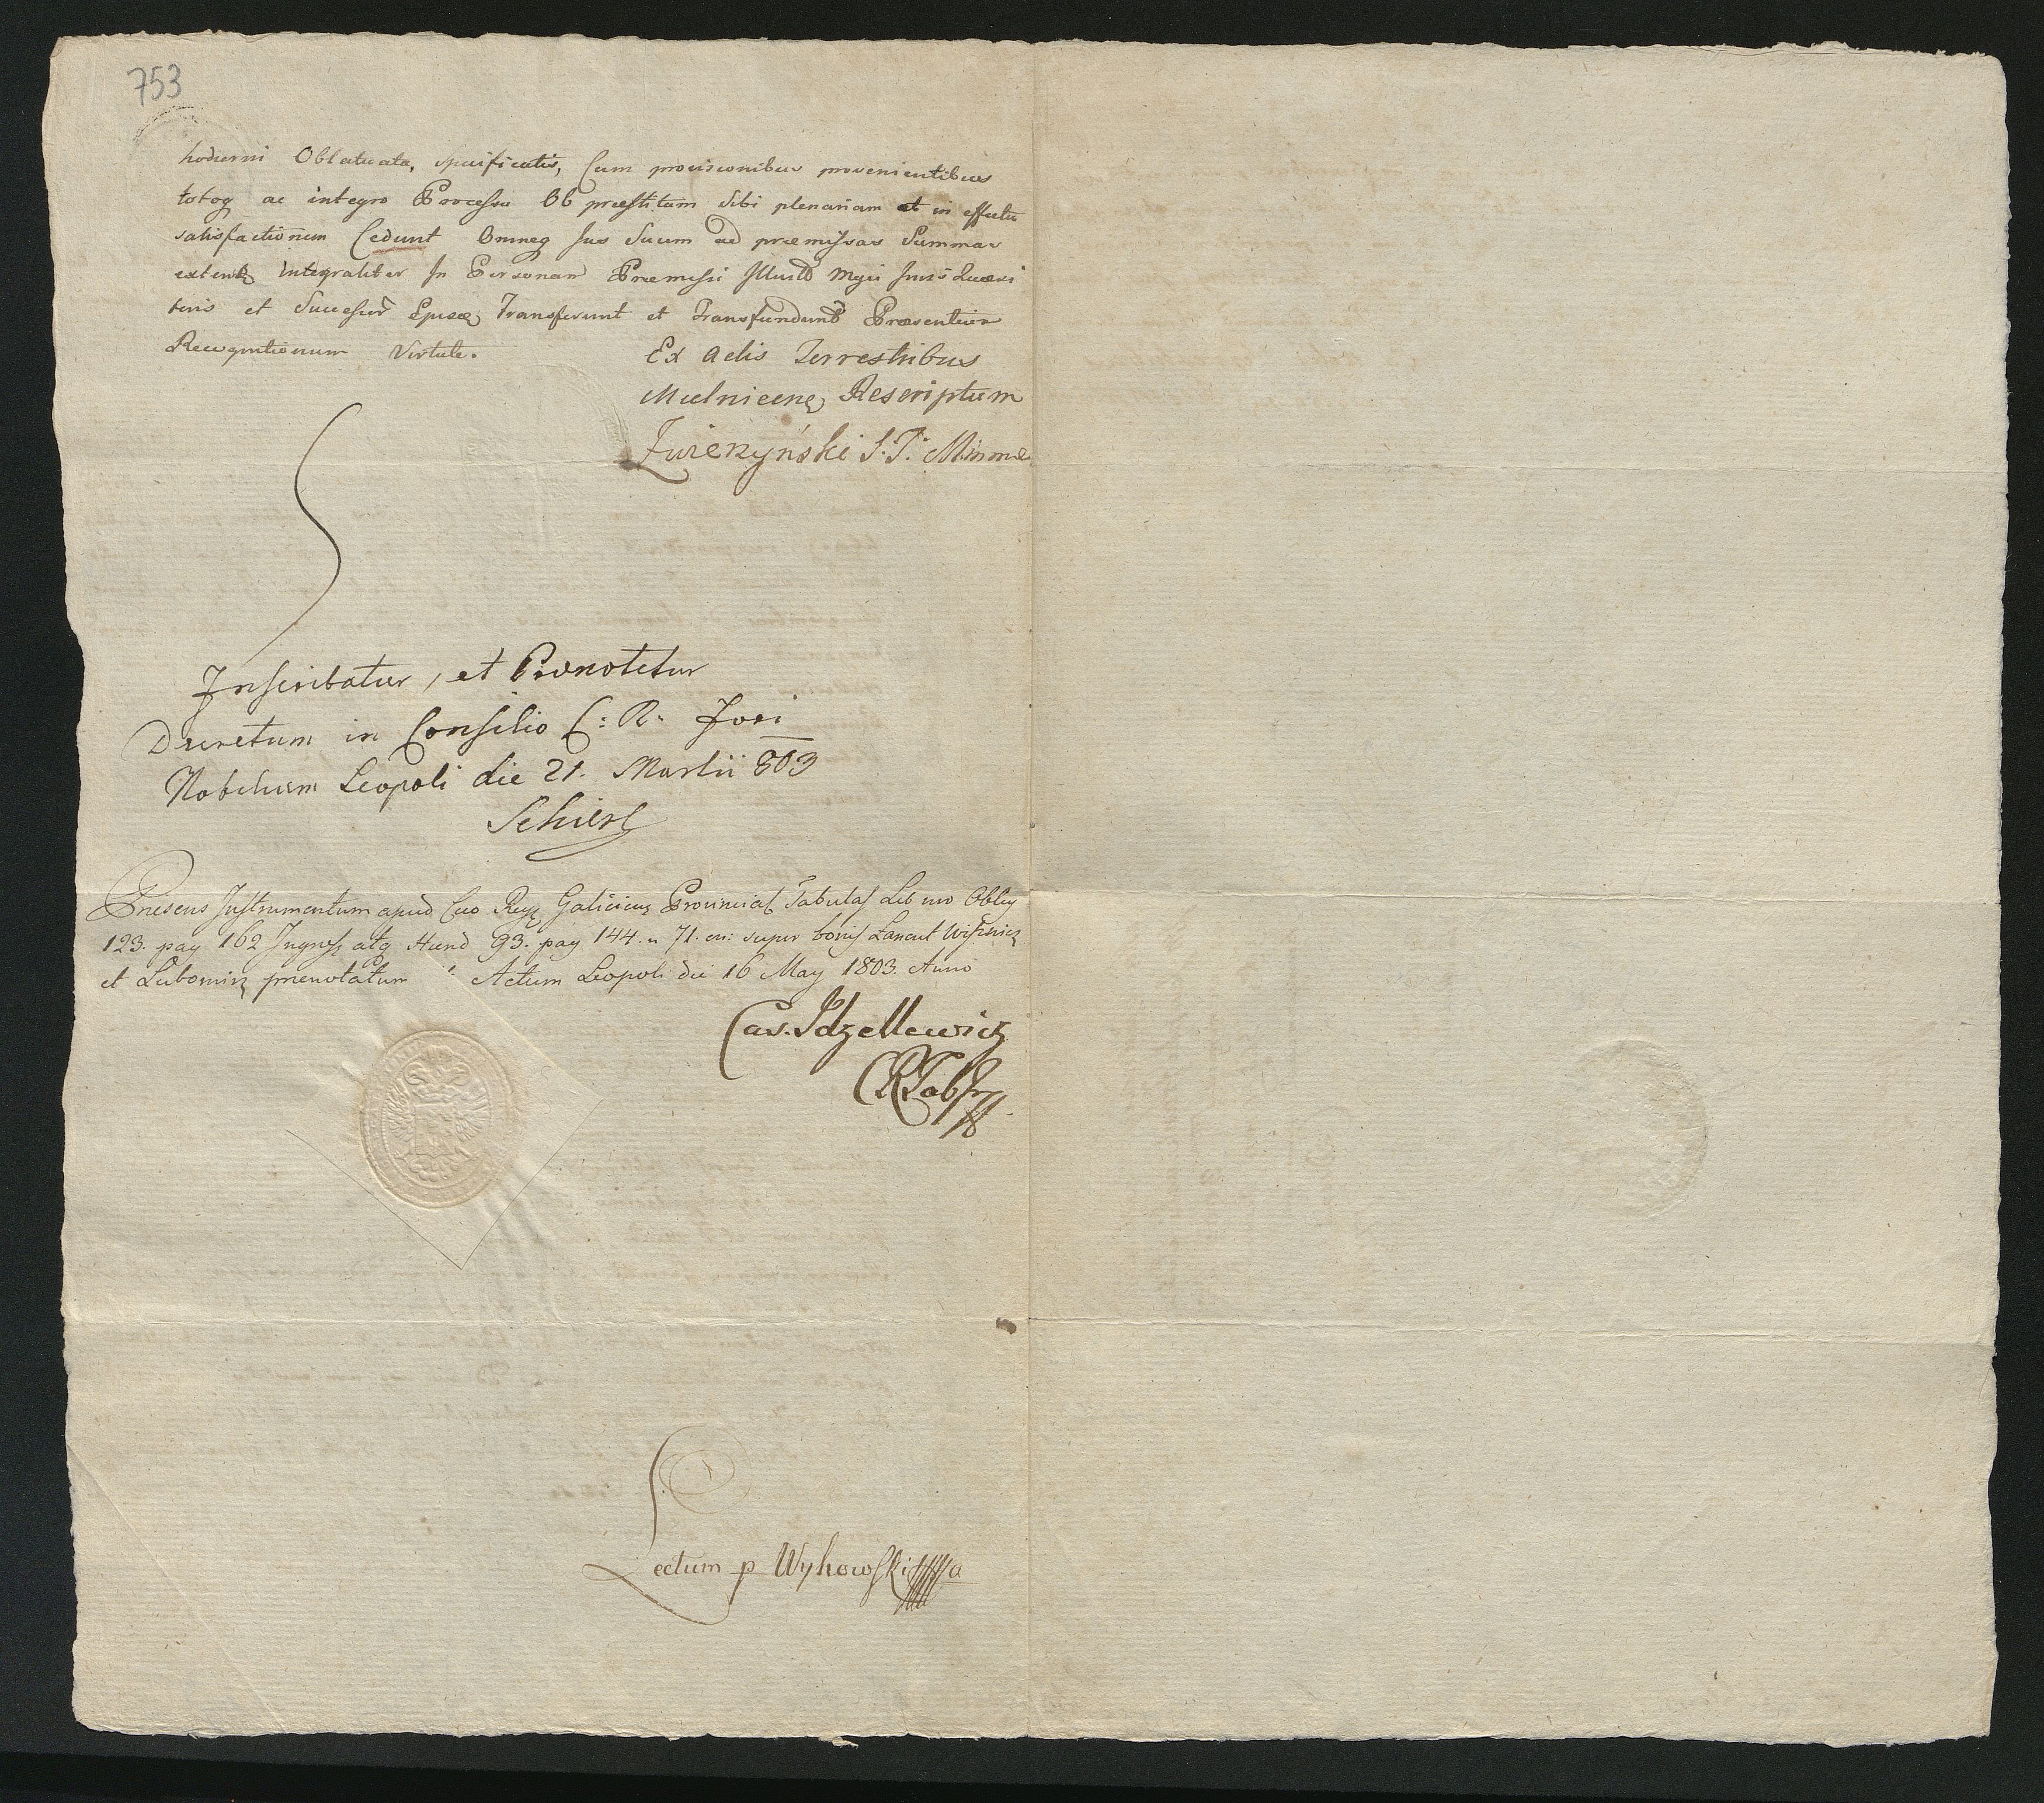 753
hodierni Oblatuata, specificatis, Cum provisionibus provenientibus
totoq ac integro Processu Ob præstitum Sibi plenariam et in effectu
satisfactionem Cedunt Omneq Jus Suum ad præmissas Summas
extens integraliter In Personam Præmissi Illust Mgci
teris et Successor Ejusq Transferunt et Transfundunt Præsentium
Recognitionum Virtute.
Ex Actis Terrestribus
Mielnicens Rescriptum
Zwierzyński
Inscribatur, et Prænotetur
Decretum in Consilio C: R: Fori
Nobilium Leopoli die 21. Martii 803
Schierl
Præsens Instrumentum apud Cæo Reg Galiciens Provincial Tabulas Libro Oblig
123. pag 162 Ingross atq Hared 93. pag 144. n 71. on: super bonis Lancut Wisnicz
et Lubomirz prænotatum Actum Leopoli die 16 May 1803. Anno
Cas. Idzellewicz
CRTab
Lectum p Wyhowski